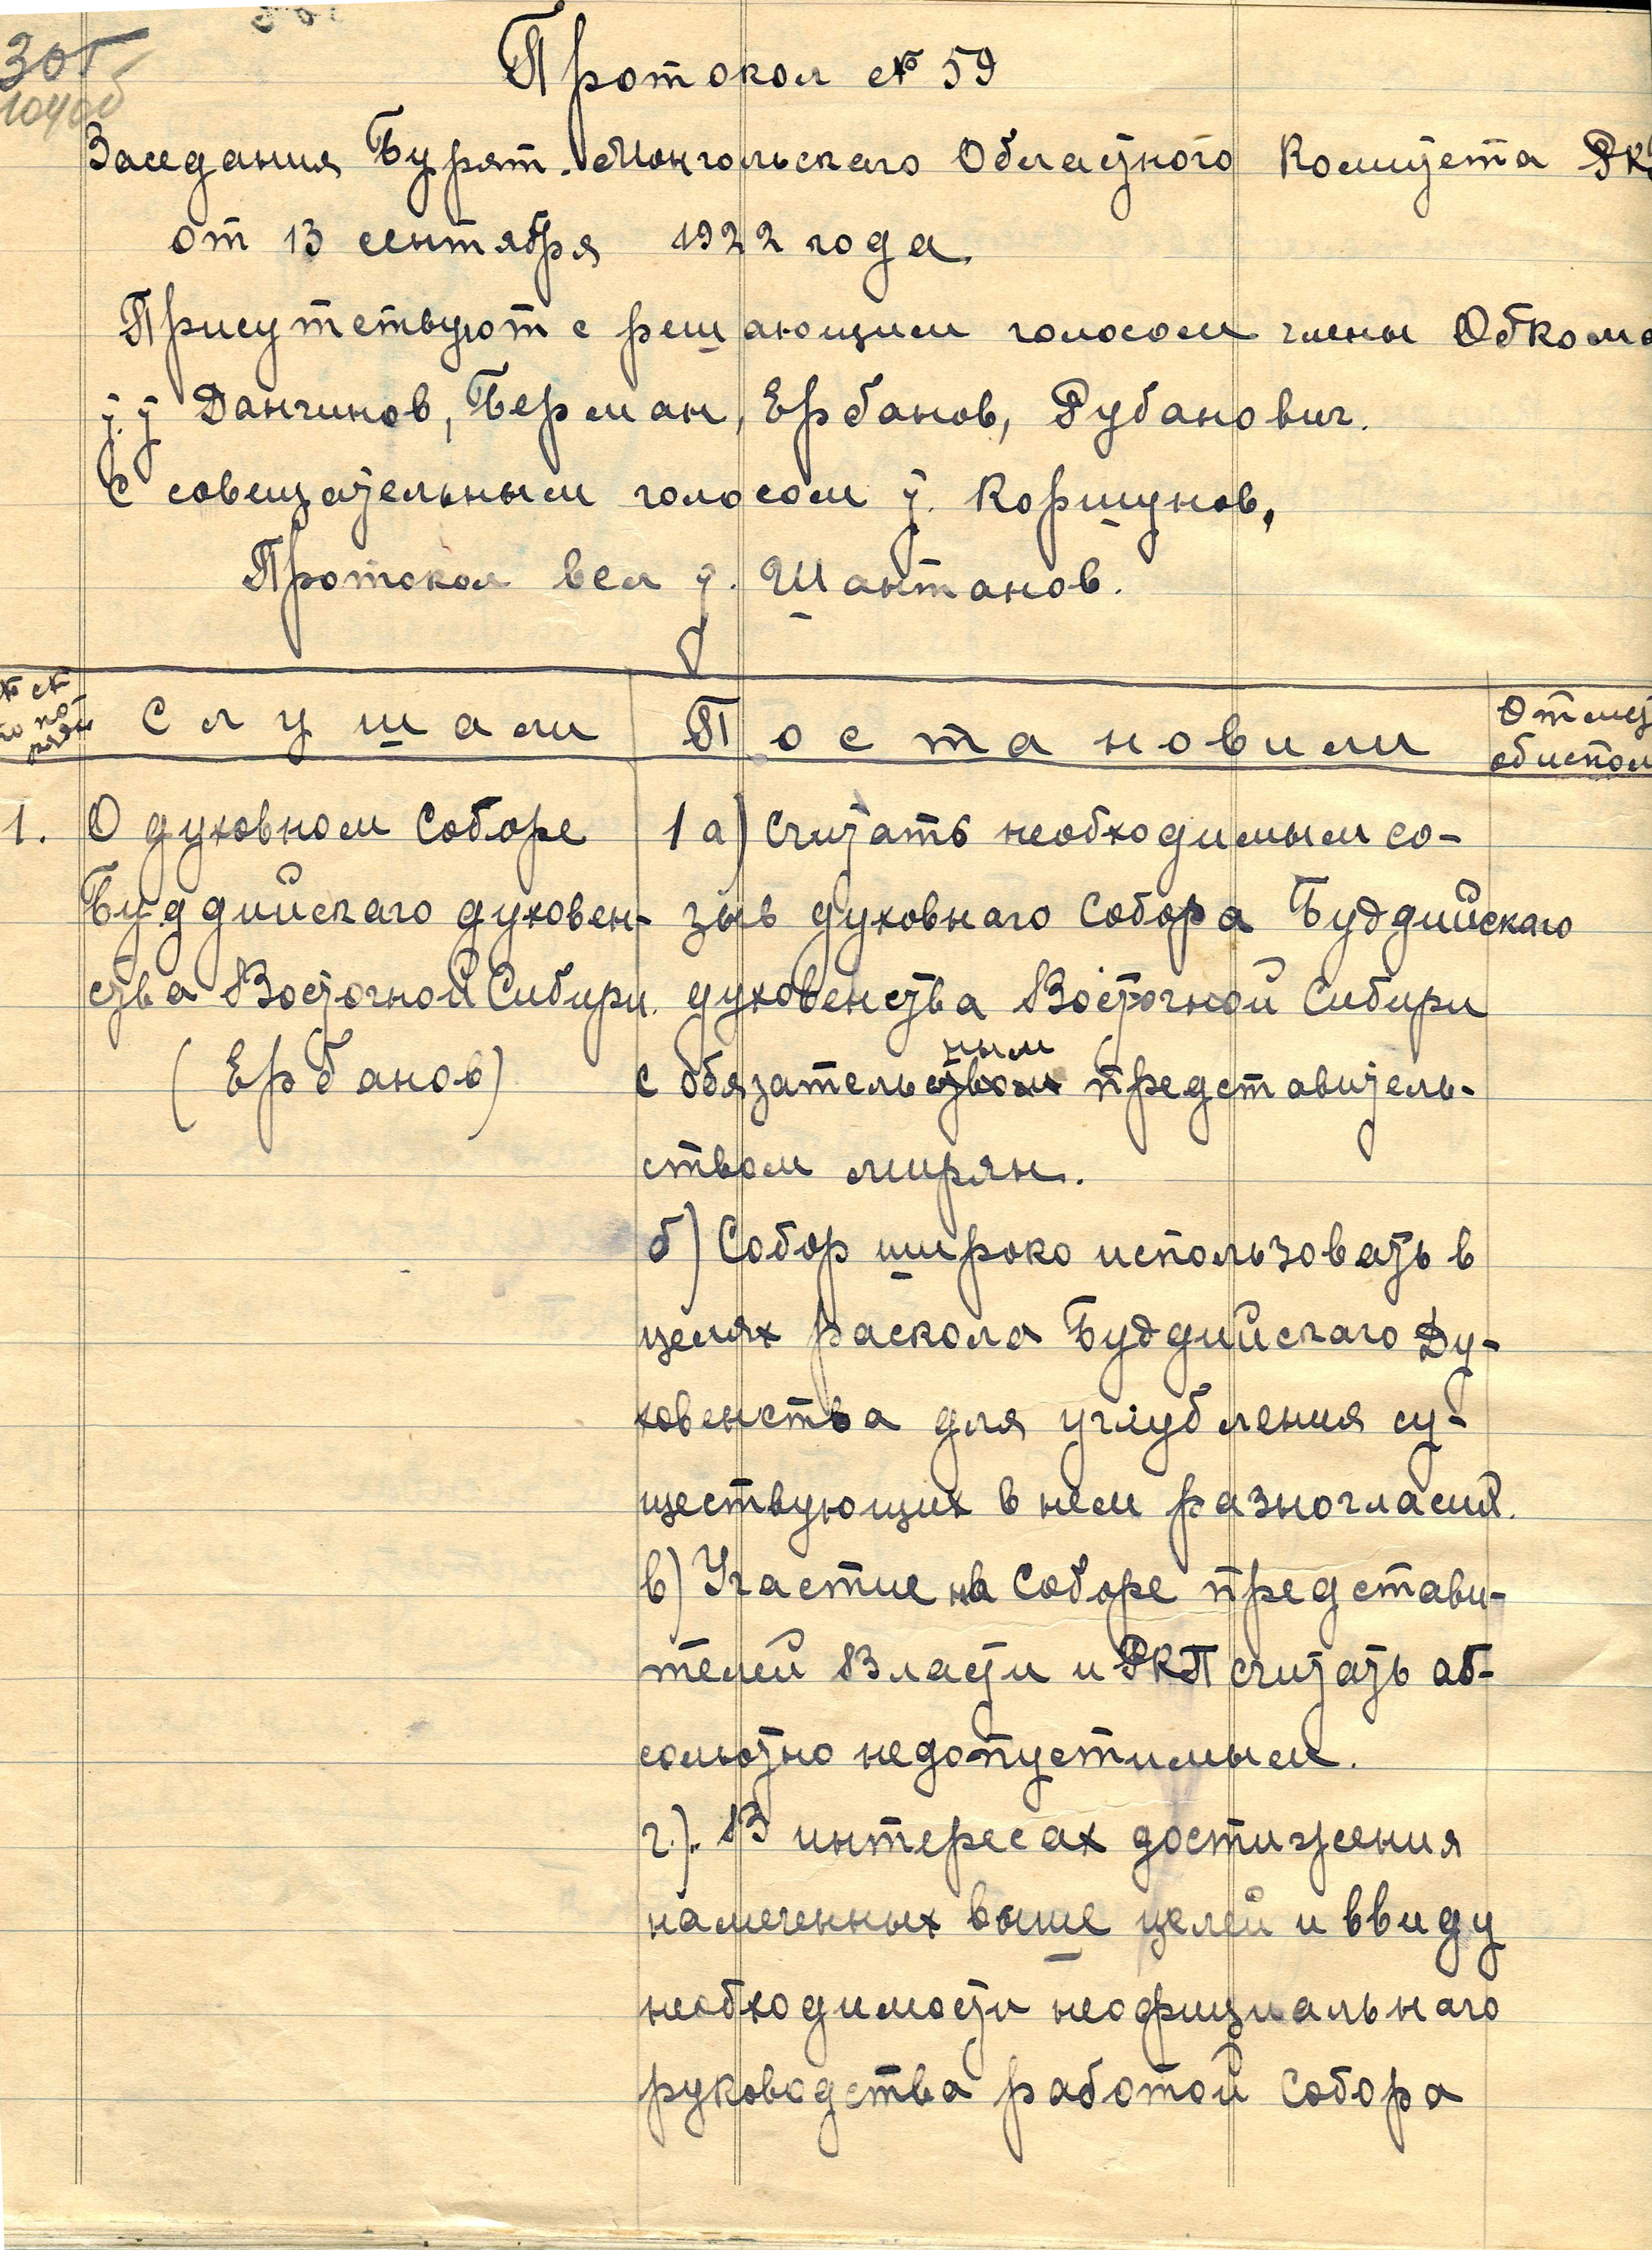 305
Протокол № 59
Заседания Бурят. Монгольскаго Областного Комитета РК
от 13 сентября 1922 года.
Присутствуют с решающим голосом члены Обкома
т.т Данчинов, Берман, Ербанов, Рубанович.
С совещательным голосом т. Коршунов,
Протокол вел т. Шантанов.
Слушали Постановили Отмет
об испол
1. О духовном Соборе
Буддийскаго духовен-
ства Восточной Сибири.
(Ербанов)
1 а) Считать необходимым со-
зыв духовнаго Собора Буддийскаго
духовенства Восточной Сибири
ным
с обязательством представитель-
ством мирян.
б) Собор широко использовать в
целях раскола Буддийскаго Ду-
ховенства для углубления су-
ществующих в нем разногласий.
в) Участие на Соборе представи-
телей Власти и РКП считать аб-
солютно недопустимым.
г). В интересах достижения
намеченных выше целей и ввиду
необходимости неофициальнаго
руководства работой Собора